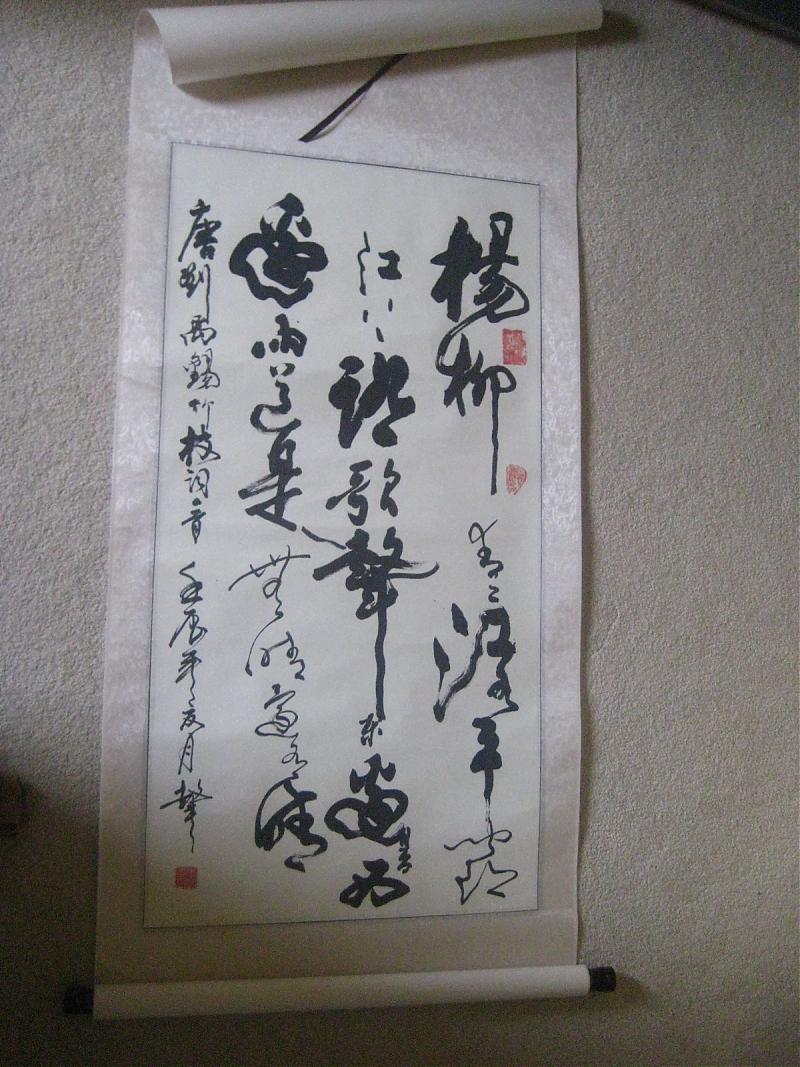 楊柳青〻江水平聞郎
江上踏歌聲東邊日出西
邊雨道是無晴還有晴
唐劉禹錫竹枝詞一首壬辰年夏月